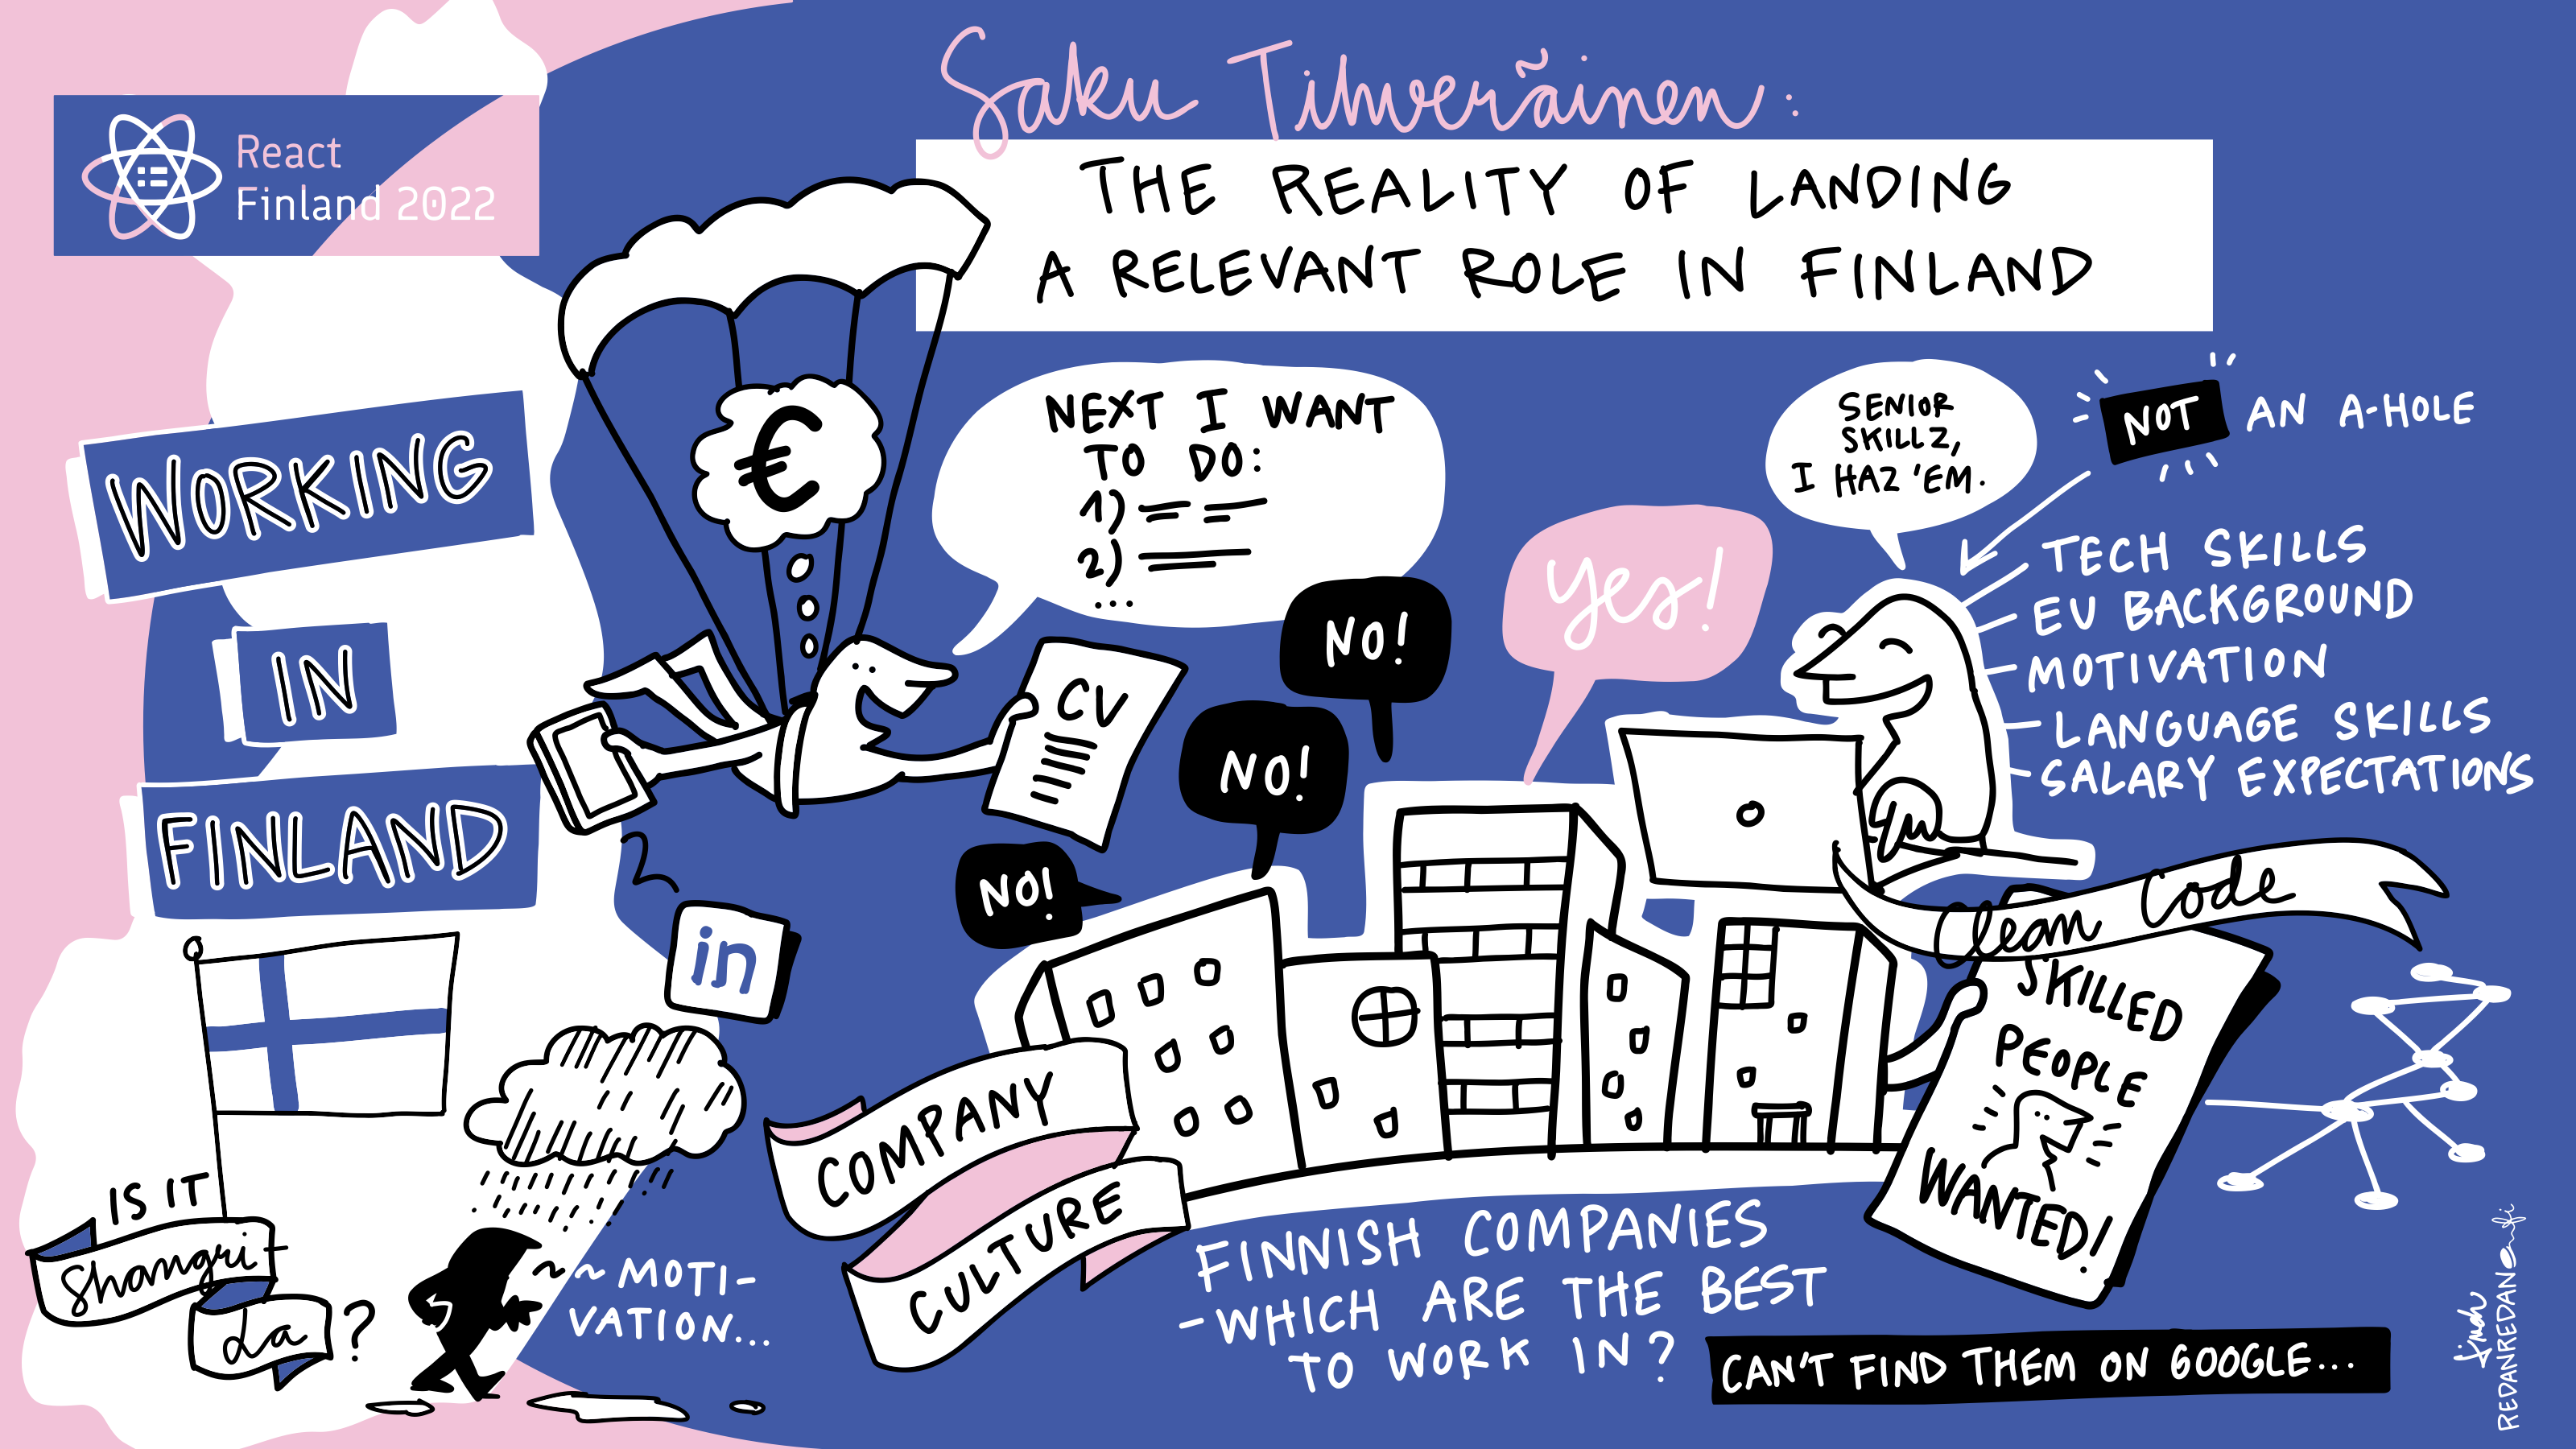 React
Finland 2022
Saku Tihveräinen:
THE REALITY OF LANDING
A RELEVANT ROLE IN FINLAND
WORKING
IN
FINLAND
€
NEXT I WANT
TO DO:
1)
2)
...
CV
NO!
NO!
NO!
yes!
SENIOR
SKILLZ,
I HAZ 'EM.
NOT AN A-HOLE
TECH SKILLS
EU BACKGROUND
MOTIVATION
LANGUAGE SKILLS
SALARY EXPECTATIONS
Clean Code
SKILLED
PEOPLE
WANTED!
in
IS IT
Shangri-
La?
~~MOTI-
VATION...
COMPANY
CULTURE
FINNISH COMPANIES
-WHICH ARE THE BEST
TO WORK IN?
CAN'T FIND THEM ON GOOGLE...
REDANREDAN